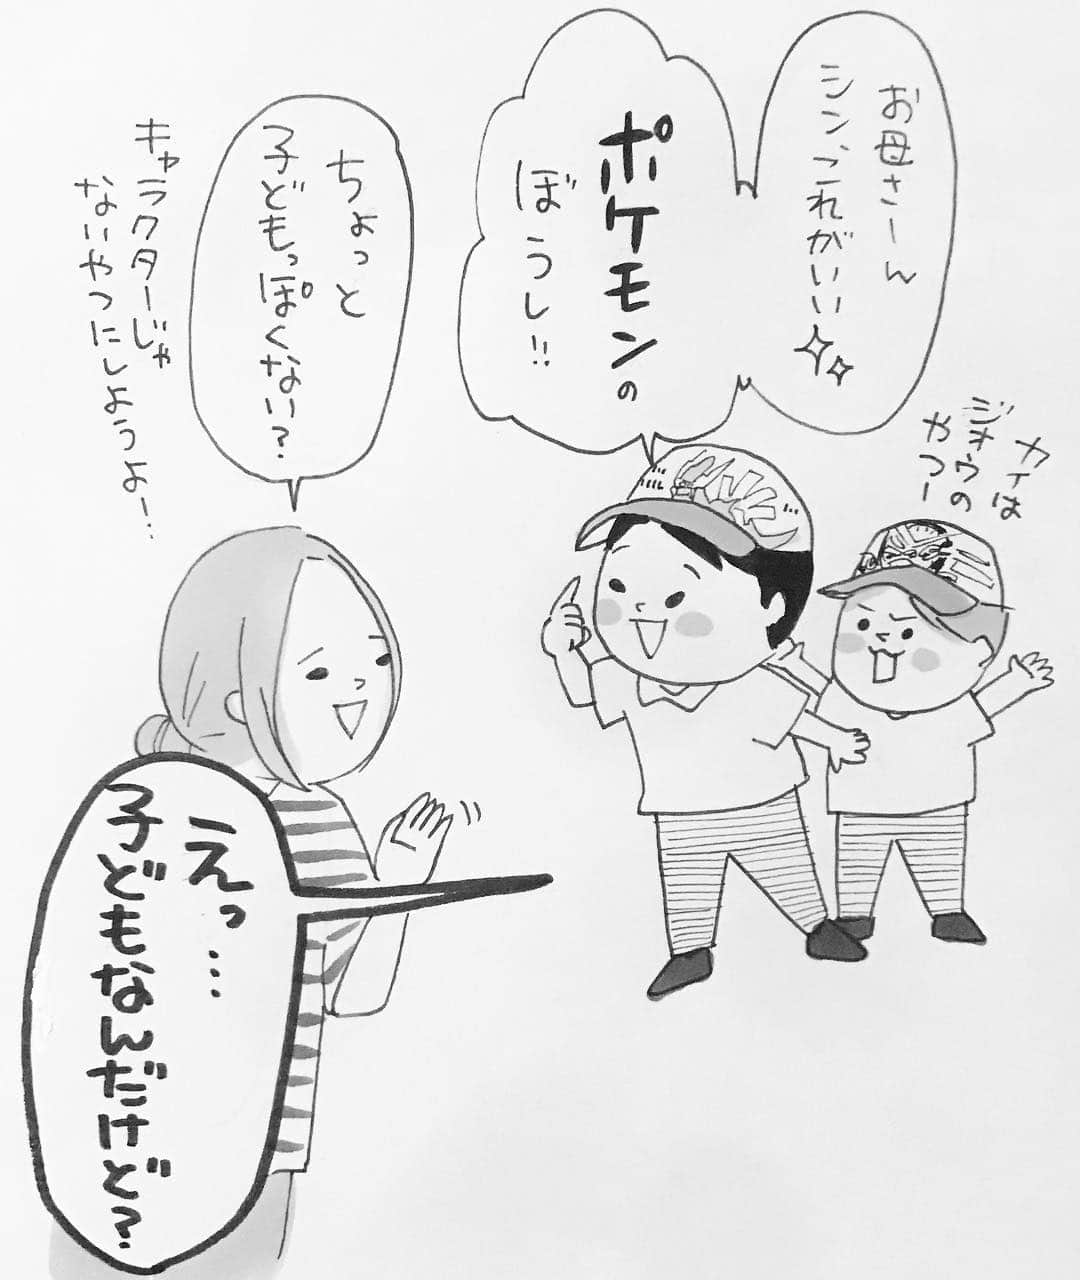 お母さーん
シン、これがいい
ポケモンの
ぼうし!!
カイは
ジオウの
やつー
ちょっと
子どもっぽくない?
キャラクターじゃ
ないやつにしようよー…
えっ…
子どもなんだけど?